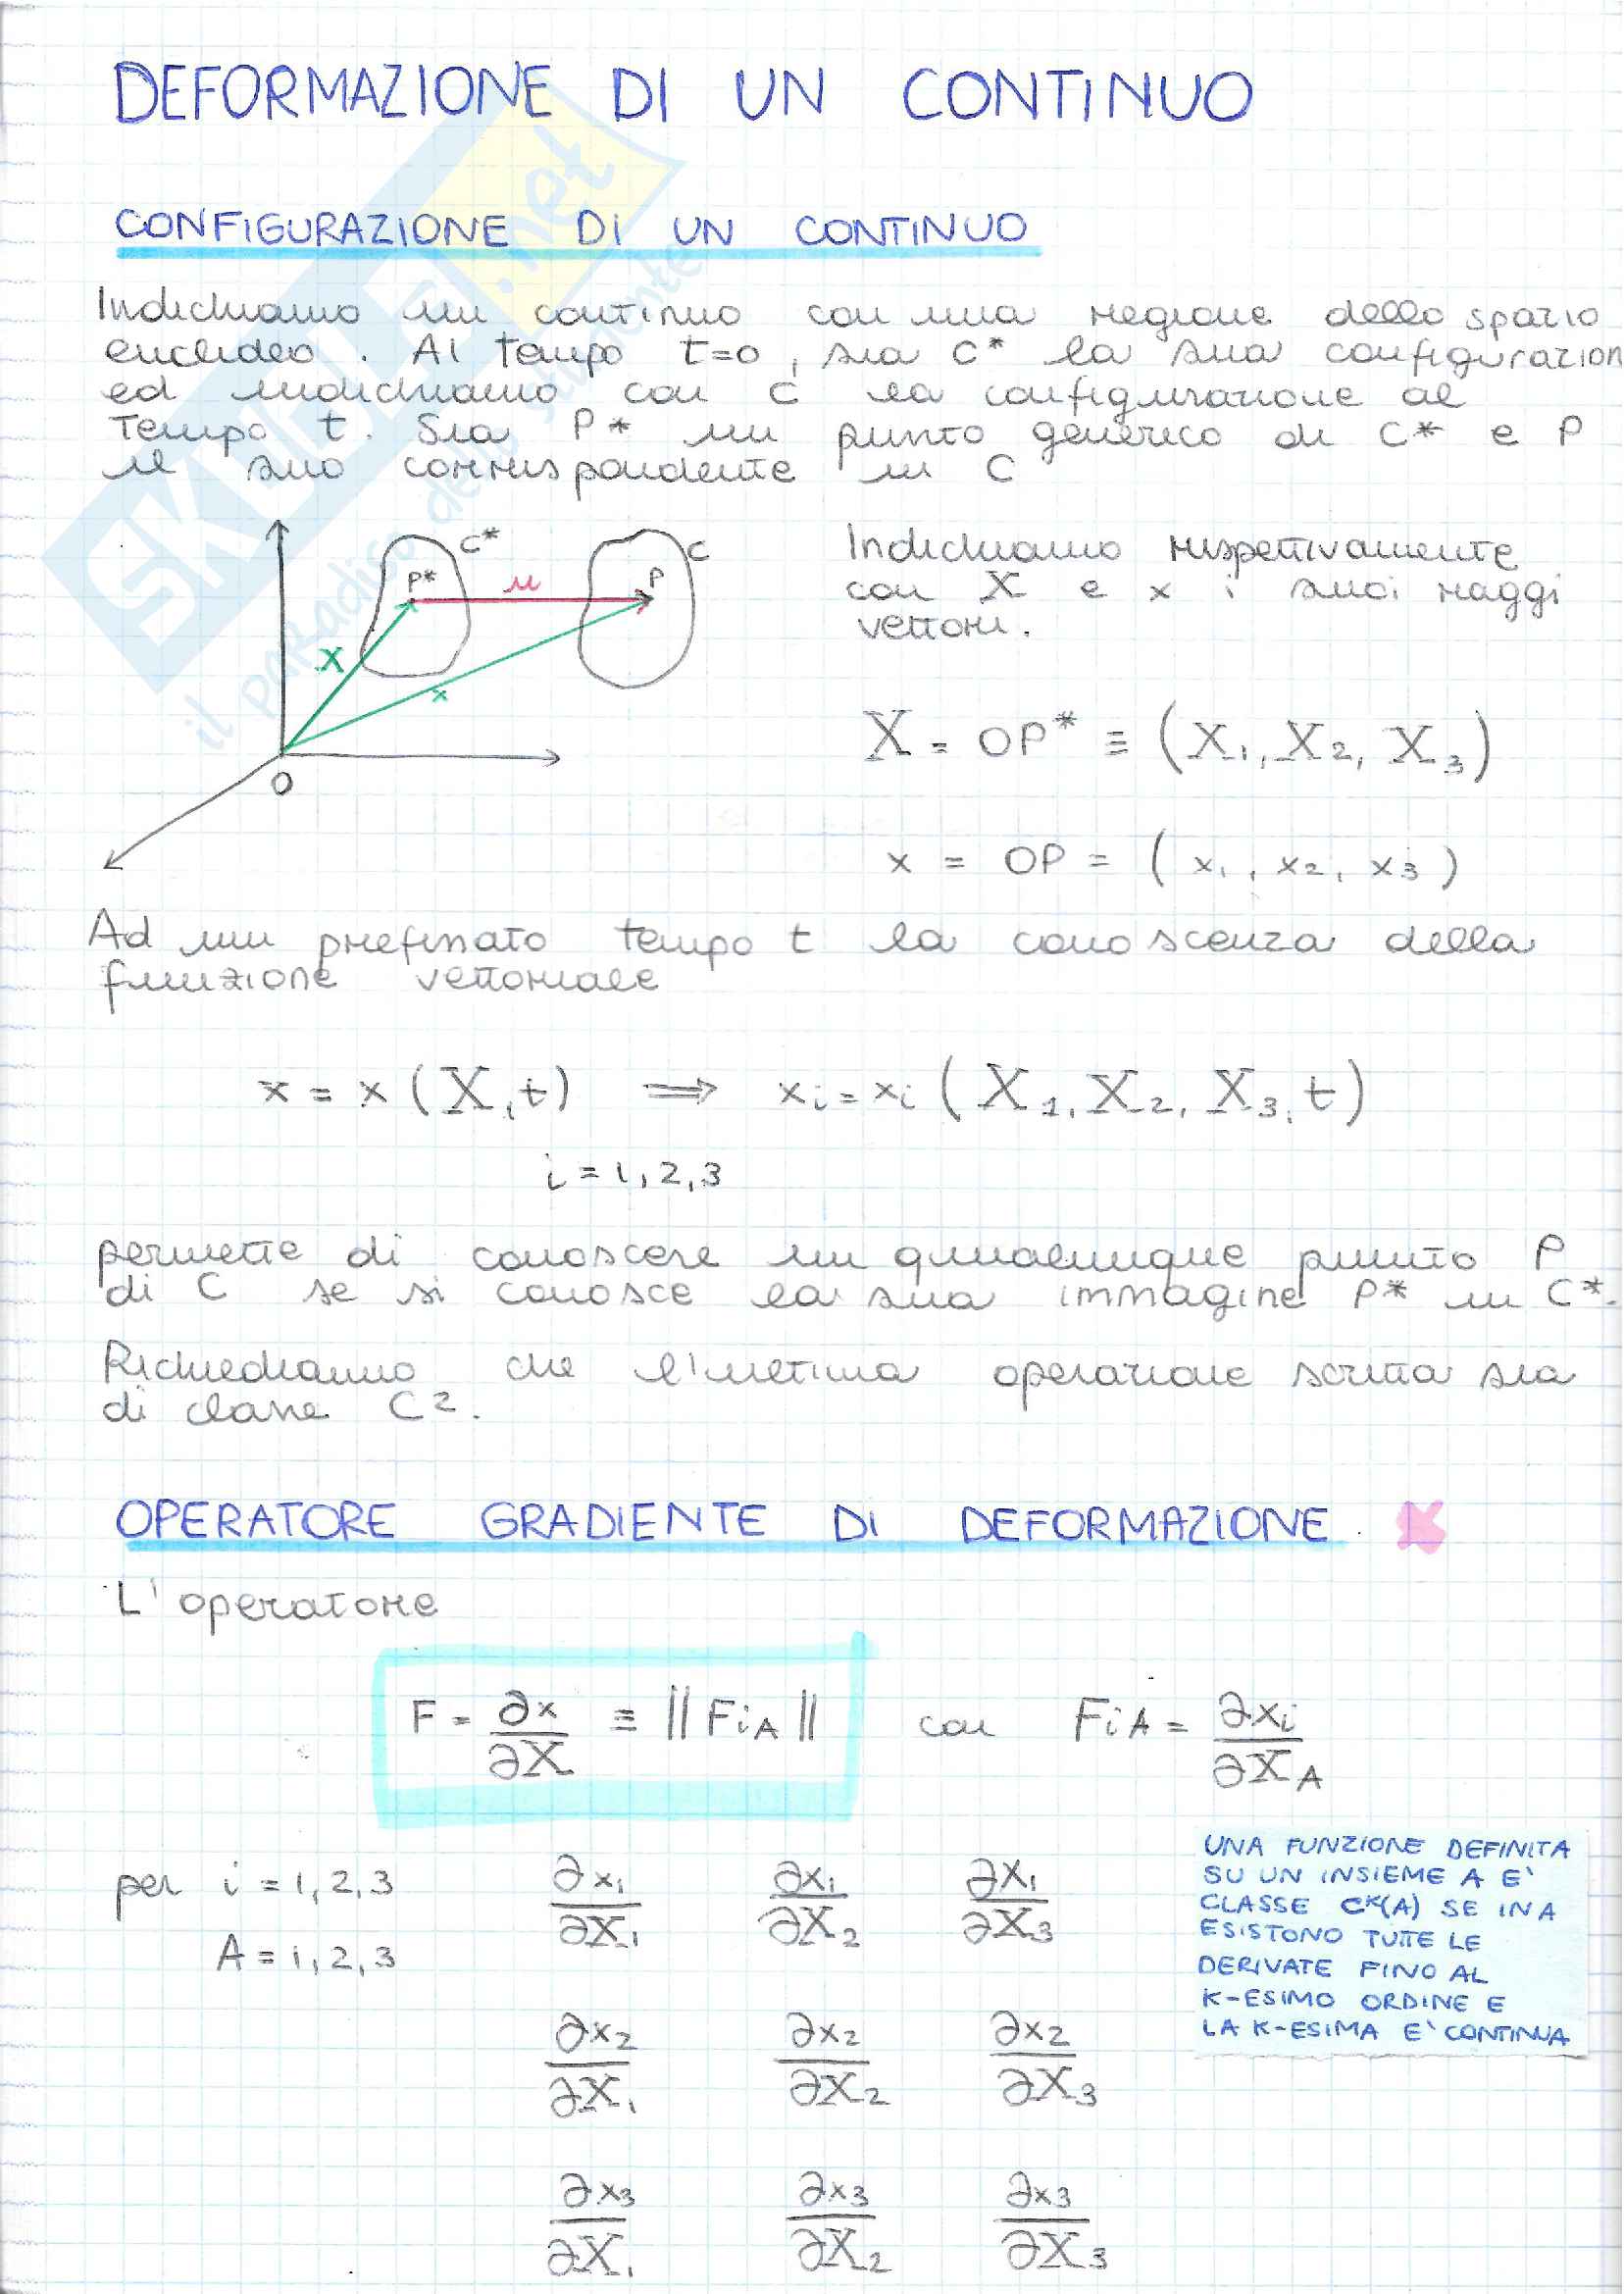 DEFORMAZIONE DI UN CONTINUO
CONFIGURAZIONE DI UN CONTINUO
Indichiamo un continuo con una regione dello spazio
euclideo. Al tempo t=0, sia C* la sua configurazion
ed indichiamo con C la configurazione al
tempo t. Sia P* un punto generico di C* e P
il suo corrispondente in C
C*
C
P*
u
P
X
x
O
Indichiamo rispettivamente
con X e x i suoi raggi
vettori.
X = OP* ≡ (X₁, X₂, X₃)
x = OP = (x₁, x₂, x₃)
Ad un prefinato tempo t la conoscenza della
funzione vettoriale
x = x (X,t) ⟹ xi = xi (X₁, X₂, X₃, t)
i = 1,2,3
permette di conoscere un qualunque punto P
di C se si conosce la sua immagine P* in C*.
Richiediamo che l'ultima operazione scritta sia
di classe C².
OPERATORE GRADIENTE DI DEFORMAZIONE
L'operatore
F = ∂x/∂X ≡ ||FiA|| con FiA = ∂xi/∂XA
per i = 1,2,3
A = 1,2,3
∂x₁/∂X₁ ∂x₁/∂X₂ ∂x₁/∂X₃
∂x₂/∂X₁ ∂x₂/∂X₂ ∂x₂/∂X₃
∂x₃/∂X₁ ∂x₃/∂X₂ ∂x₃/∂X₃
UNA FUNZIONE DEFINITA
SU UN INSIEME A E'
CLASSE Cᴷ(A) SE IN A
ESISTONO TUTTE LE
DERIVATE FINO AL
K-ESIMO ORDINE E
LA K-ESIMA E' CONTINUA
SKUOLA.net
il paradiso dello studente